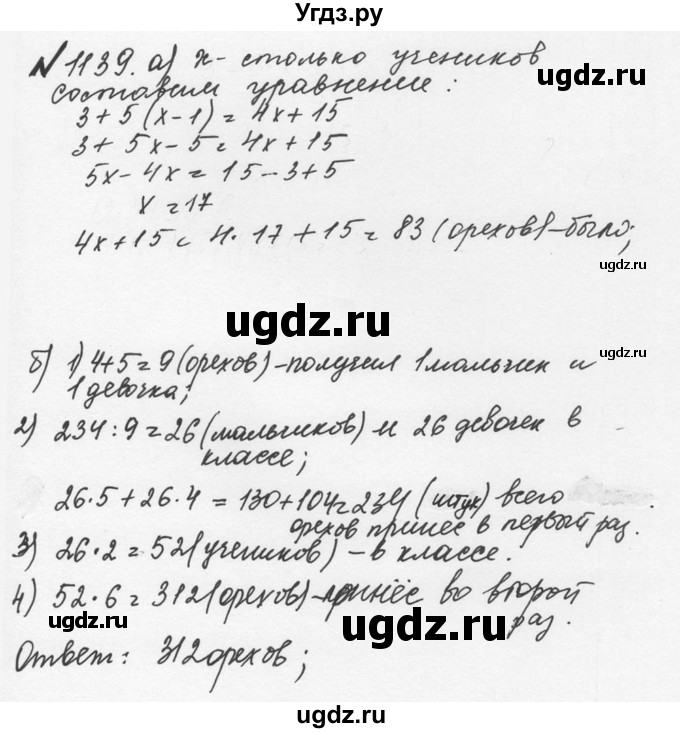 Угдз.ру
№1139. а) х- столько учеников
составим уравнение:
3 + 5 (х-1) = 4х + 15
3 + 5х - 5 = 4х + 15
5х - 4х = 15 - 3 + 5
х = 17
4х + 15 = 4 · 17 + 15 = 83 (орехов) - было;
ugdz.ru
ugdz.ru
б) 1) 4+5=9 (орехов) - получил 1 мальчик и
1 девочка;
ugdz.ru
2) 234 : 9 = 26 (мальчиков) и 26 девочек в
классе;
26 · 5 + 26 · 4 = 130 + 104 = 234 (штук) всего
орехов принёс в первый раз.
3) 26 · 2 = 52 (учеников) - в классе.
4) 52 · 6 = 312 (орехов) - принёс во второй
раз.
ugdz.ru
ugdz.ru
ugdz.ru
Ответ: 312 орехов;
ugdz.ru